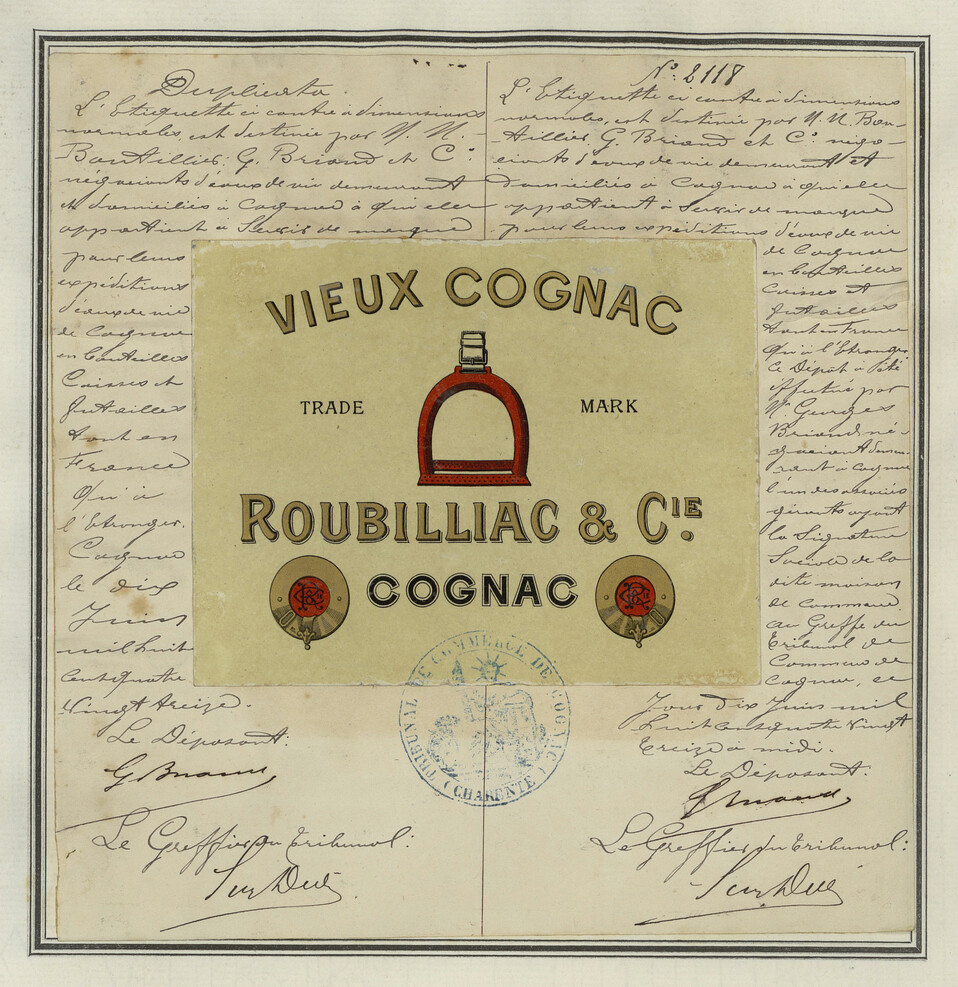 Duplicata.
L'Etiquette ci contre à dimensions
normales est destinée par M. M.
Boutillier, G. Briand et Cº.
négociants d'eaux de vie demeurant
et domiciliés à Cognac à qui elle
appartient à Servir de marque
pour leurs
expéditions
d'eaux de vie
de Cognac
en bouteilles
Caisses et
futailles
tant en
France
qu'à
l'étranger.
Cognac
le dix
Juin
mil huit
cent quatre
vingt treize.
Le Déposant:
G Briand
Le Greffier du Tribunal:
Nº. 2118
L'Etiquette ci contre à dimensions
normales, est destinée par M. M. Bou-
tillier, G. Briand et Cº négo-
ciants d'eaux de vie demeurant et
domiciliés à Cognac à qui elle
appartient à Servir de marque
pour leurs expéditions d'eaux de vie
de Cognac
en bouteilles
Caisses et
futailles
tant en France
qu'à l'Etranger
Ce Dépôt a été
effectué par
Mr. Georges
Briand né-
gociant demeu-
rant à Cognac
l'un des associés
gérants ayant
la Signature
Sociale de la
dite maison
de Commerce.
au Greffe du
Tribunal de
Commerce de
Cognac, ce
Jour dix Juin mil
huit cent quatre vingt
treize à midi.
Le Déposant:
G Briand
Le Greffier du Tribunal:
VIEUX COGNAC
TRADE MARK
ROUBILLIAC & CIE.
COGNAC
TRIBUNAL DE COMMERCE DE COGNAC
(CHARENTE)